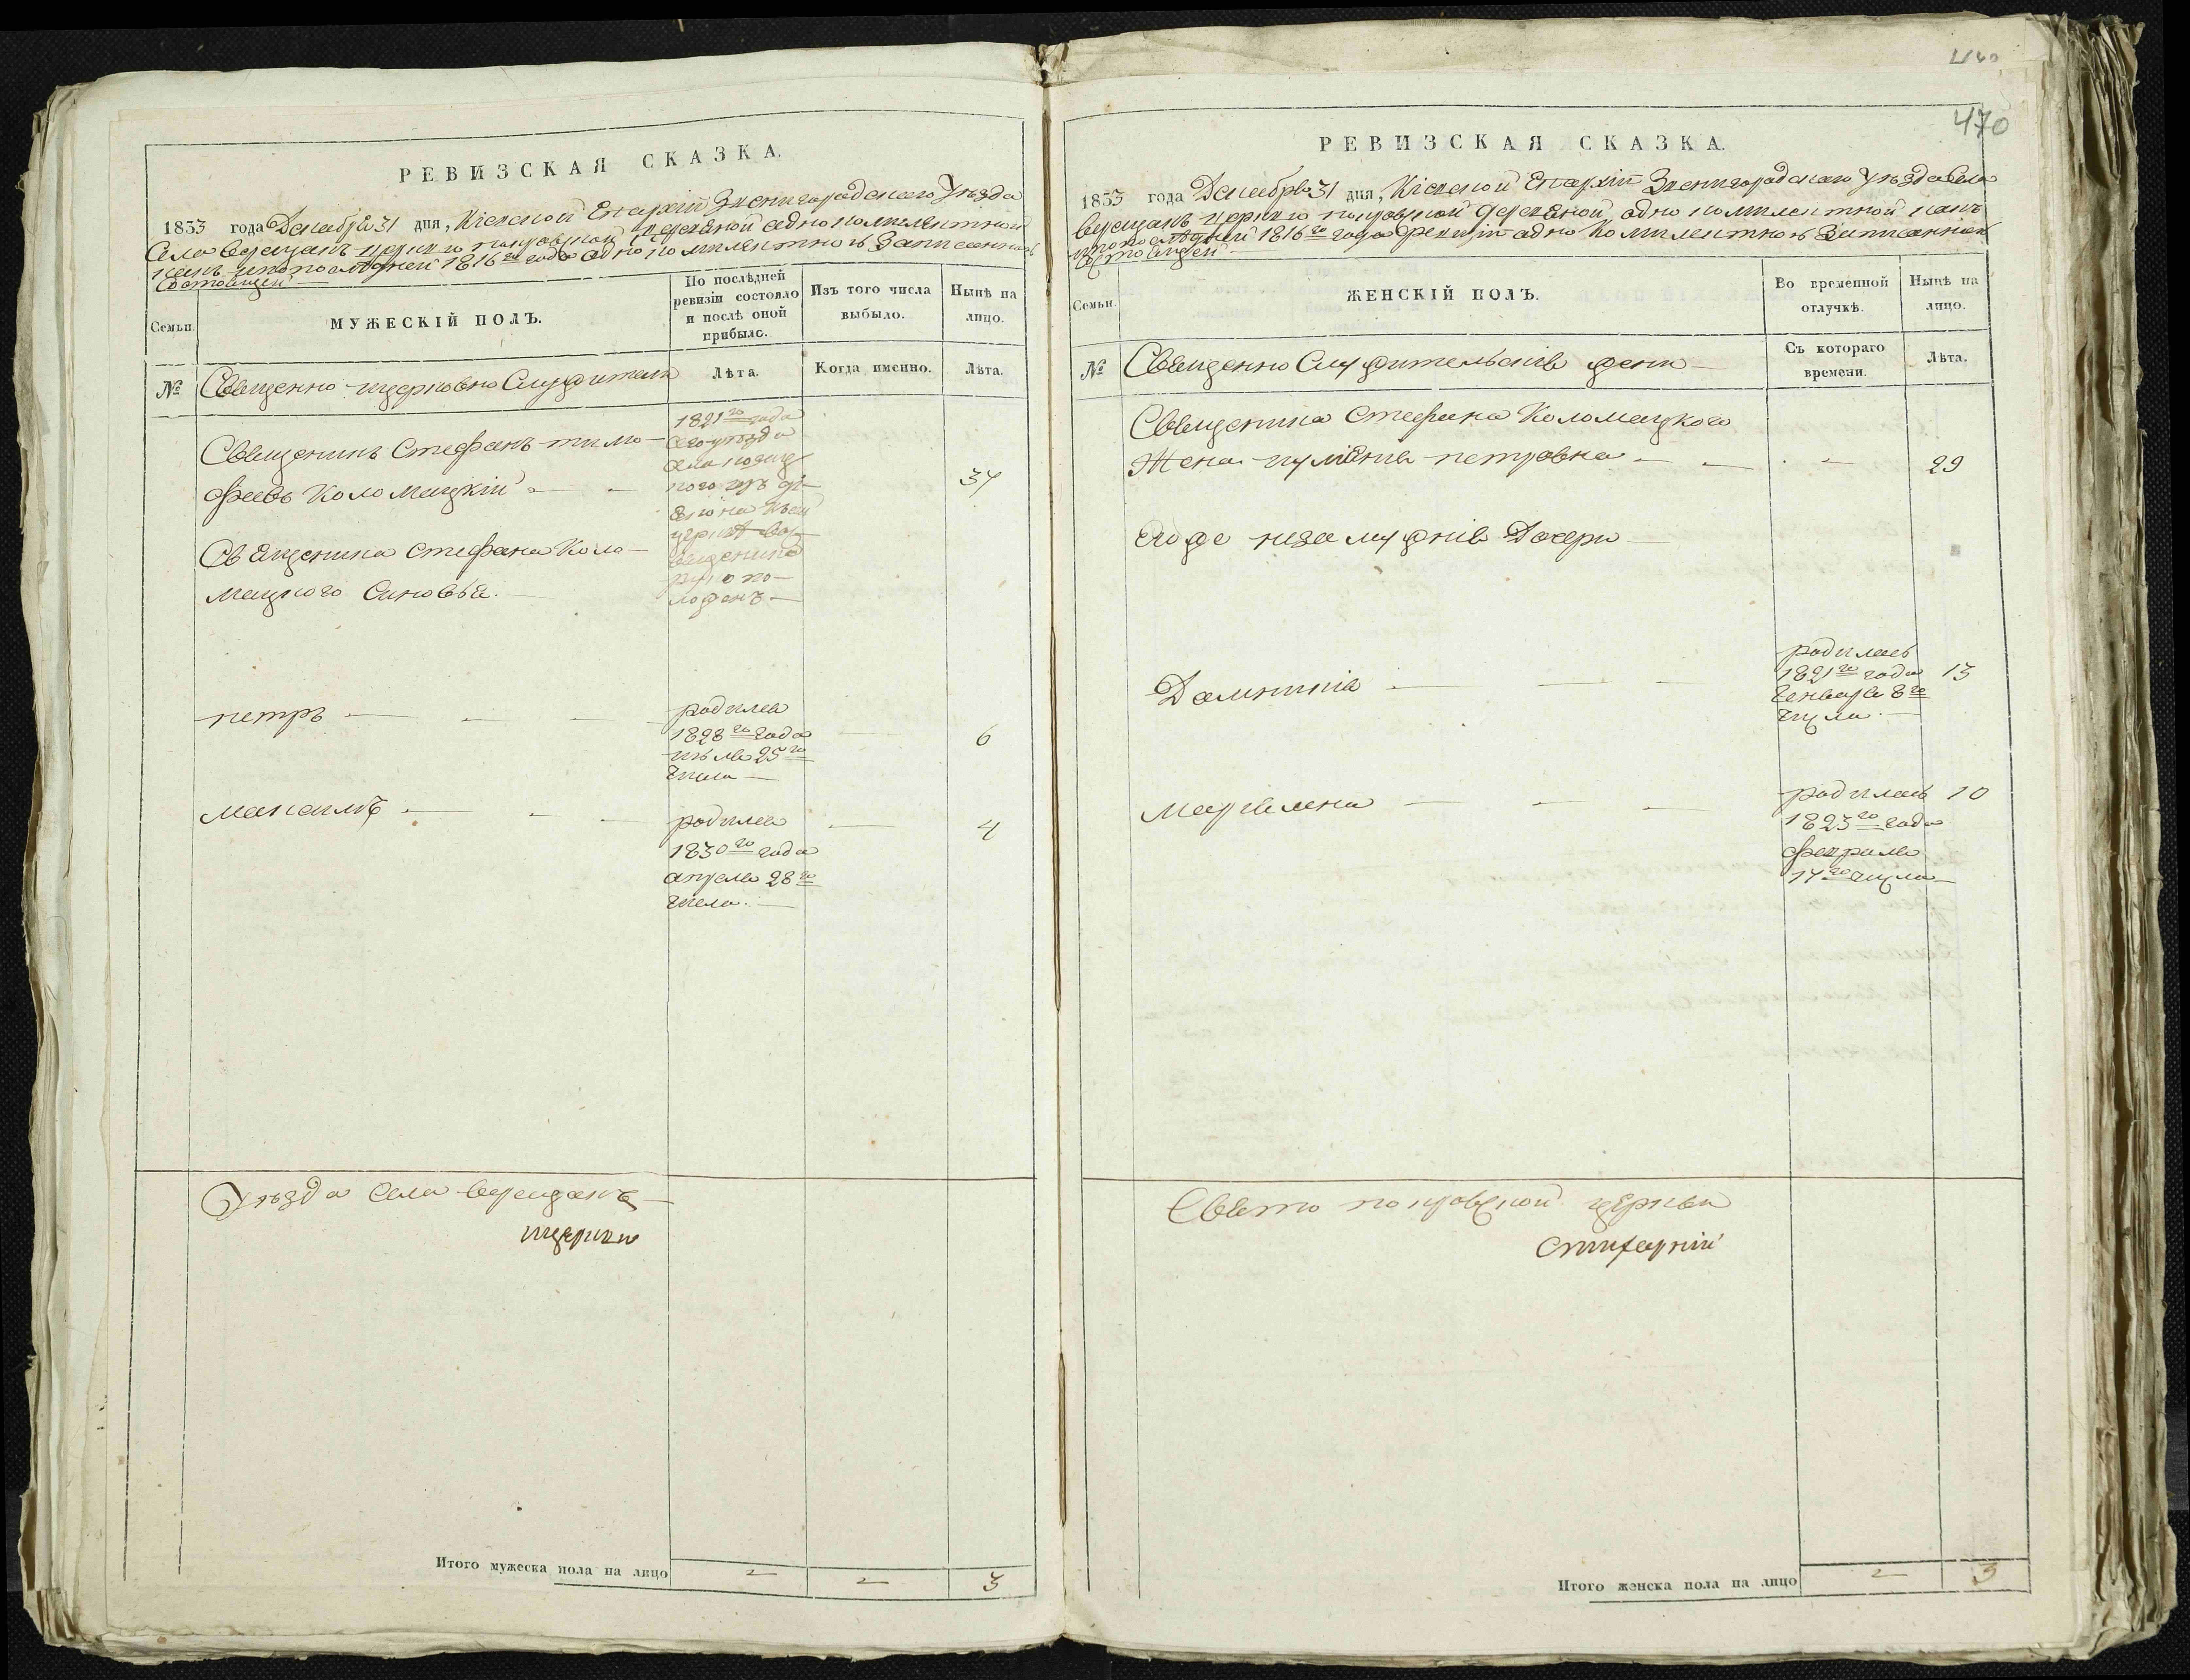 РЕВИЗСКАЯ СКАЗКА.
1833 года Декабря 31 дня, Кіевской Епархіи Звенигородскаго Уѣзда
Села Верещакъ церкви покровской деревяной одно комплектной
какъ по последней 1816го года одно комплектною записанной
состоящей
Семьи.
МУЖЕСКІЙ ПОЛЪ.
По послѣдней
ревизіи состояло
и послѣ оной
прибыло.
Изъ того числа
выбыло.
Нынѣ на
лицо.
№
Священно и церковно Служители
Лѣта.
Когда именно.
Лѣта.
Священникъ Стефанъ тимо-
феевъ Коломацкій
1821го года
села
34
Священника Стефана Коло-
мацкого Синовья.
священника
руко по-
ложенъ
петръ
родился
1828го года
25го
числа
6
максимъ
родился
1830го года
апреля 28го
числа.
4
Уѣзда Села Верещакъ
церкви
Итого мужеска пола на лицо
3
470
РЕВИЗСКАЯ СКАЗКА.
1833 года Декабря 31 дня, Кіевской Епархіи Звенигородскаго Уѣзда Села
Верещакъ церкви покровской деревяной одно комплектной какъ
по последней 1816го года ревизіи одно комплектною записанной
состоящей
Семьи.
ЖЕНСКІЙ ПОЛЪ.
Во временной
отлучкѣ.
Нынѣ на
лицо.
№
Священно Служительскія жени
Съ котораго
времени.
Лѣта.
Священника Стефана Коломацкого
Жена иуліянія петровна
29
Его же незамужнія Дочери
Домникія
родилась
1821го года
Генваря 8го
числа.
13
Маріамна
родилась
1823го года
февраля
17го числа
10
Свято покровской церкви
Итого женска пола на лицо
3